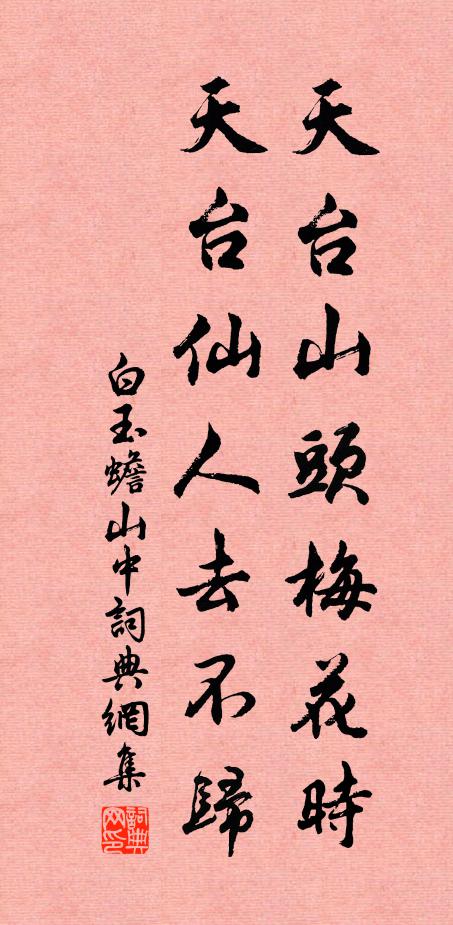 天台山頭梅花時
天台仙人去不歸
白玉蟾山中詞典網集
詞典网印